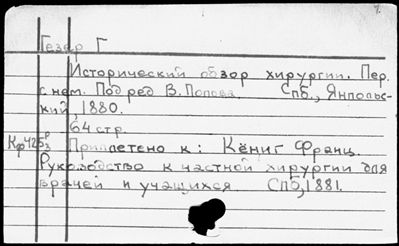 Гезер Г
Исторический обзор хирургии. Пер.
с нем. Под ред В. Попова. Спб., Янпольс-
кий, 1880.
64 стр.
Приплетено к: Кёниг Франц.
Руководство к частной хирургии для
врачей и учащихся СПб, 1881.